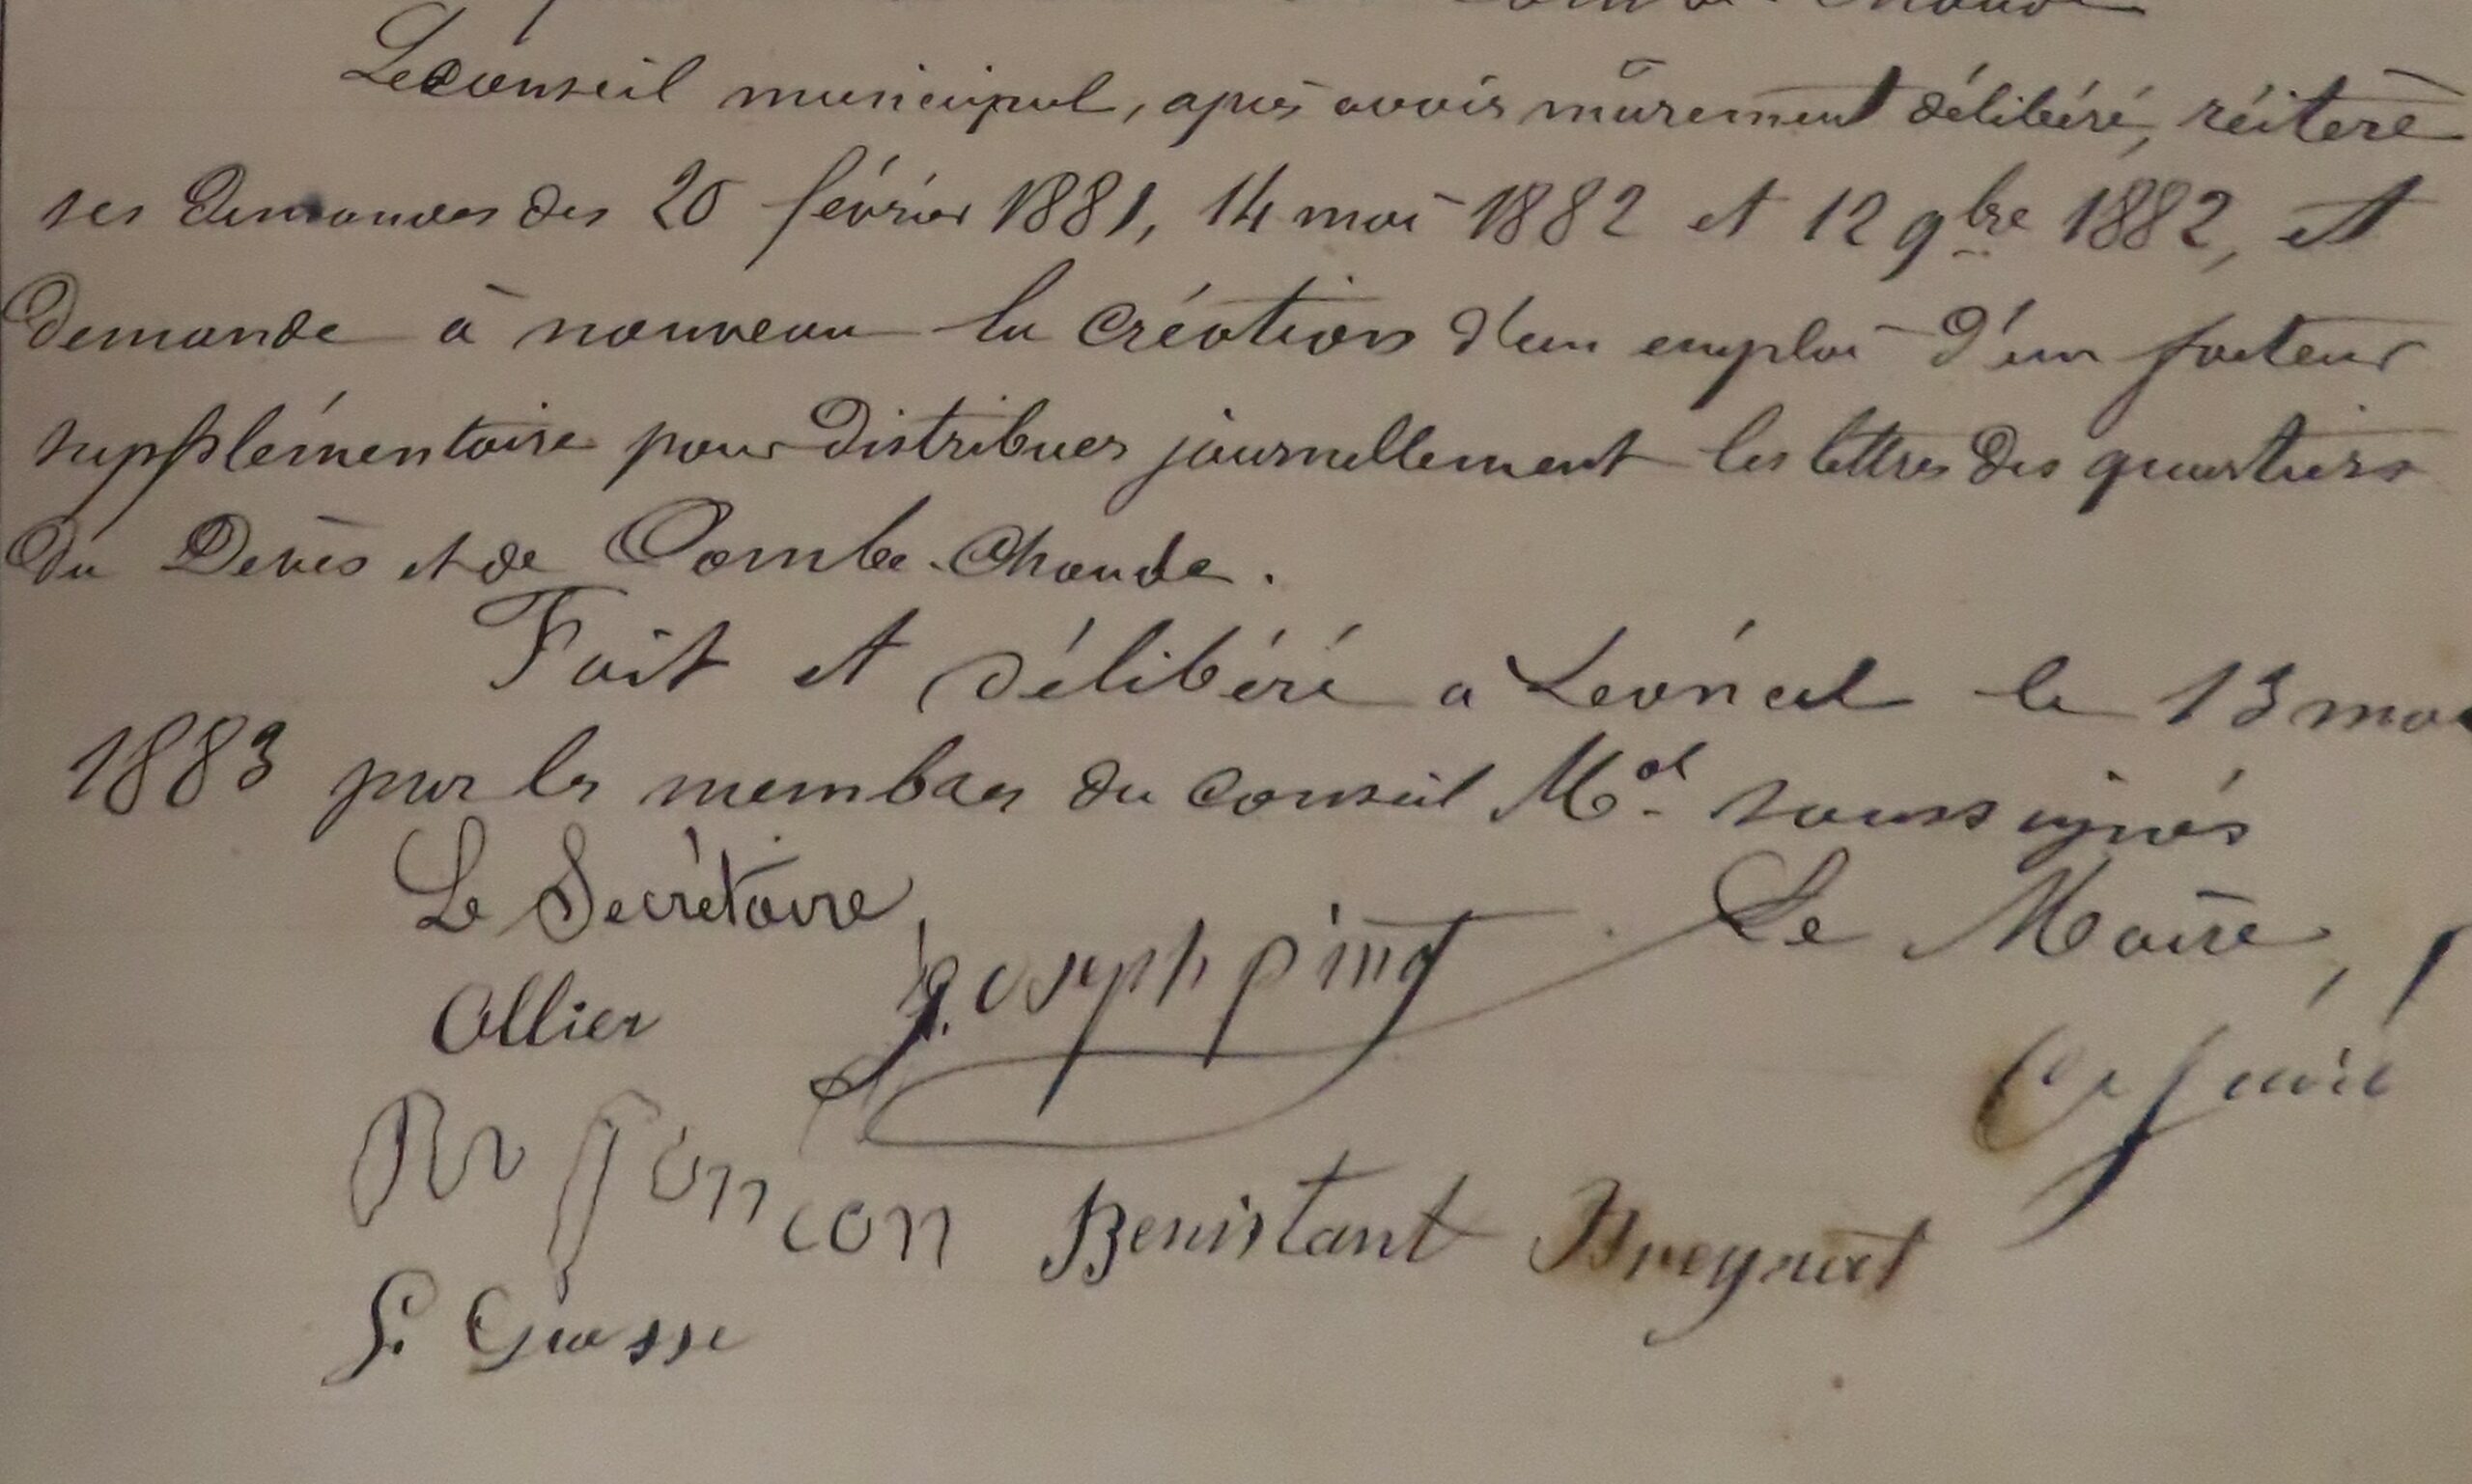 Le conseil municipal, après avoir mûrement délibéré, réitère
ses demandes des 20 février 1881, 14 mai 1882 et 12 9bre 1882, et
demande à nouveau la création d'un emploi d'un facteur
supplémentaire pour distribuer journellement les lettres des quartiers
du Devès et de Combe-Chaude.
Fait et délibéré a Léoncel le 13 mai
1883 par les membres du conseil Mal soussignés
Le Secrétaire Le Maire,
Allier Joseph
Benistant Breynat